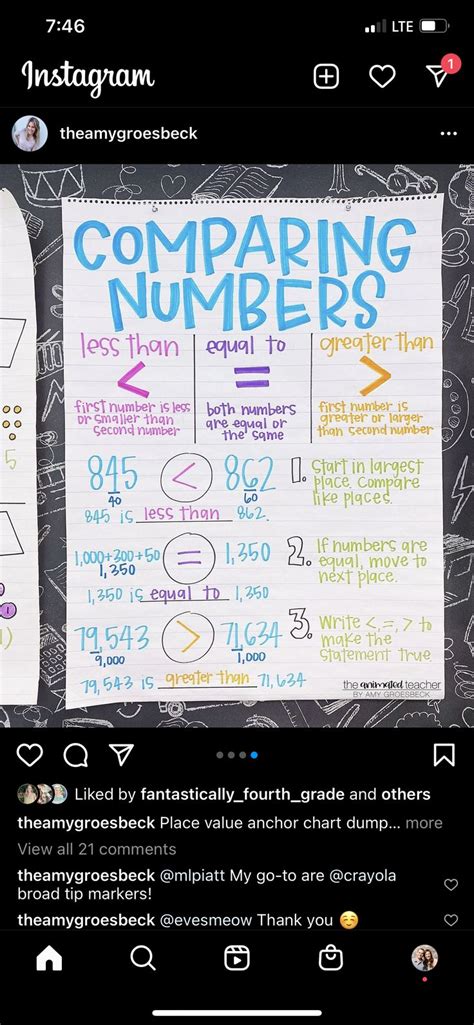 7:46 LTE
Instagram
1
theamygroesbeck
COMPARING
NUMBERS
less than
<
first number is less
or smaller than
second number
equal to
=
both numbers
are equal or
the same
greater than
>
first number is
greater or larger
than second number
845 < 862
40 60
845 is less than 862.
1. Start in largest
place. Compare
like places.
1,000+300+50 = 1,350
1,350
1,350 is equal to 1,350
2. If numbers are
equal, move to
next place.
79,543 > 71,634
9,000 1,000
79,543 is greater than 71,634
3. Write <, =, > to
make the
statement true
the animated teacher
BY AMY GROESBECK
5
Liked by fantastically_fourth_grade and others
theamygroesbeck Place value anchor chart dump... more
View all 21 comments
theamygroesbeck @mlpiatt My go-to are @crayola
broad tip markers!
theamygroesbeck @evesmeow Thank you ☺️